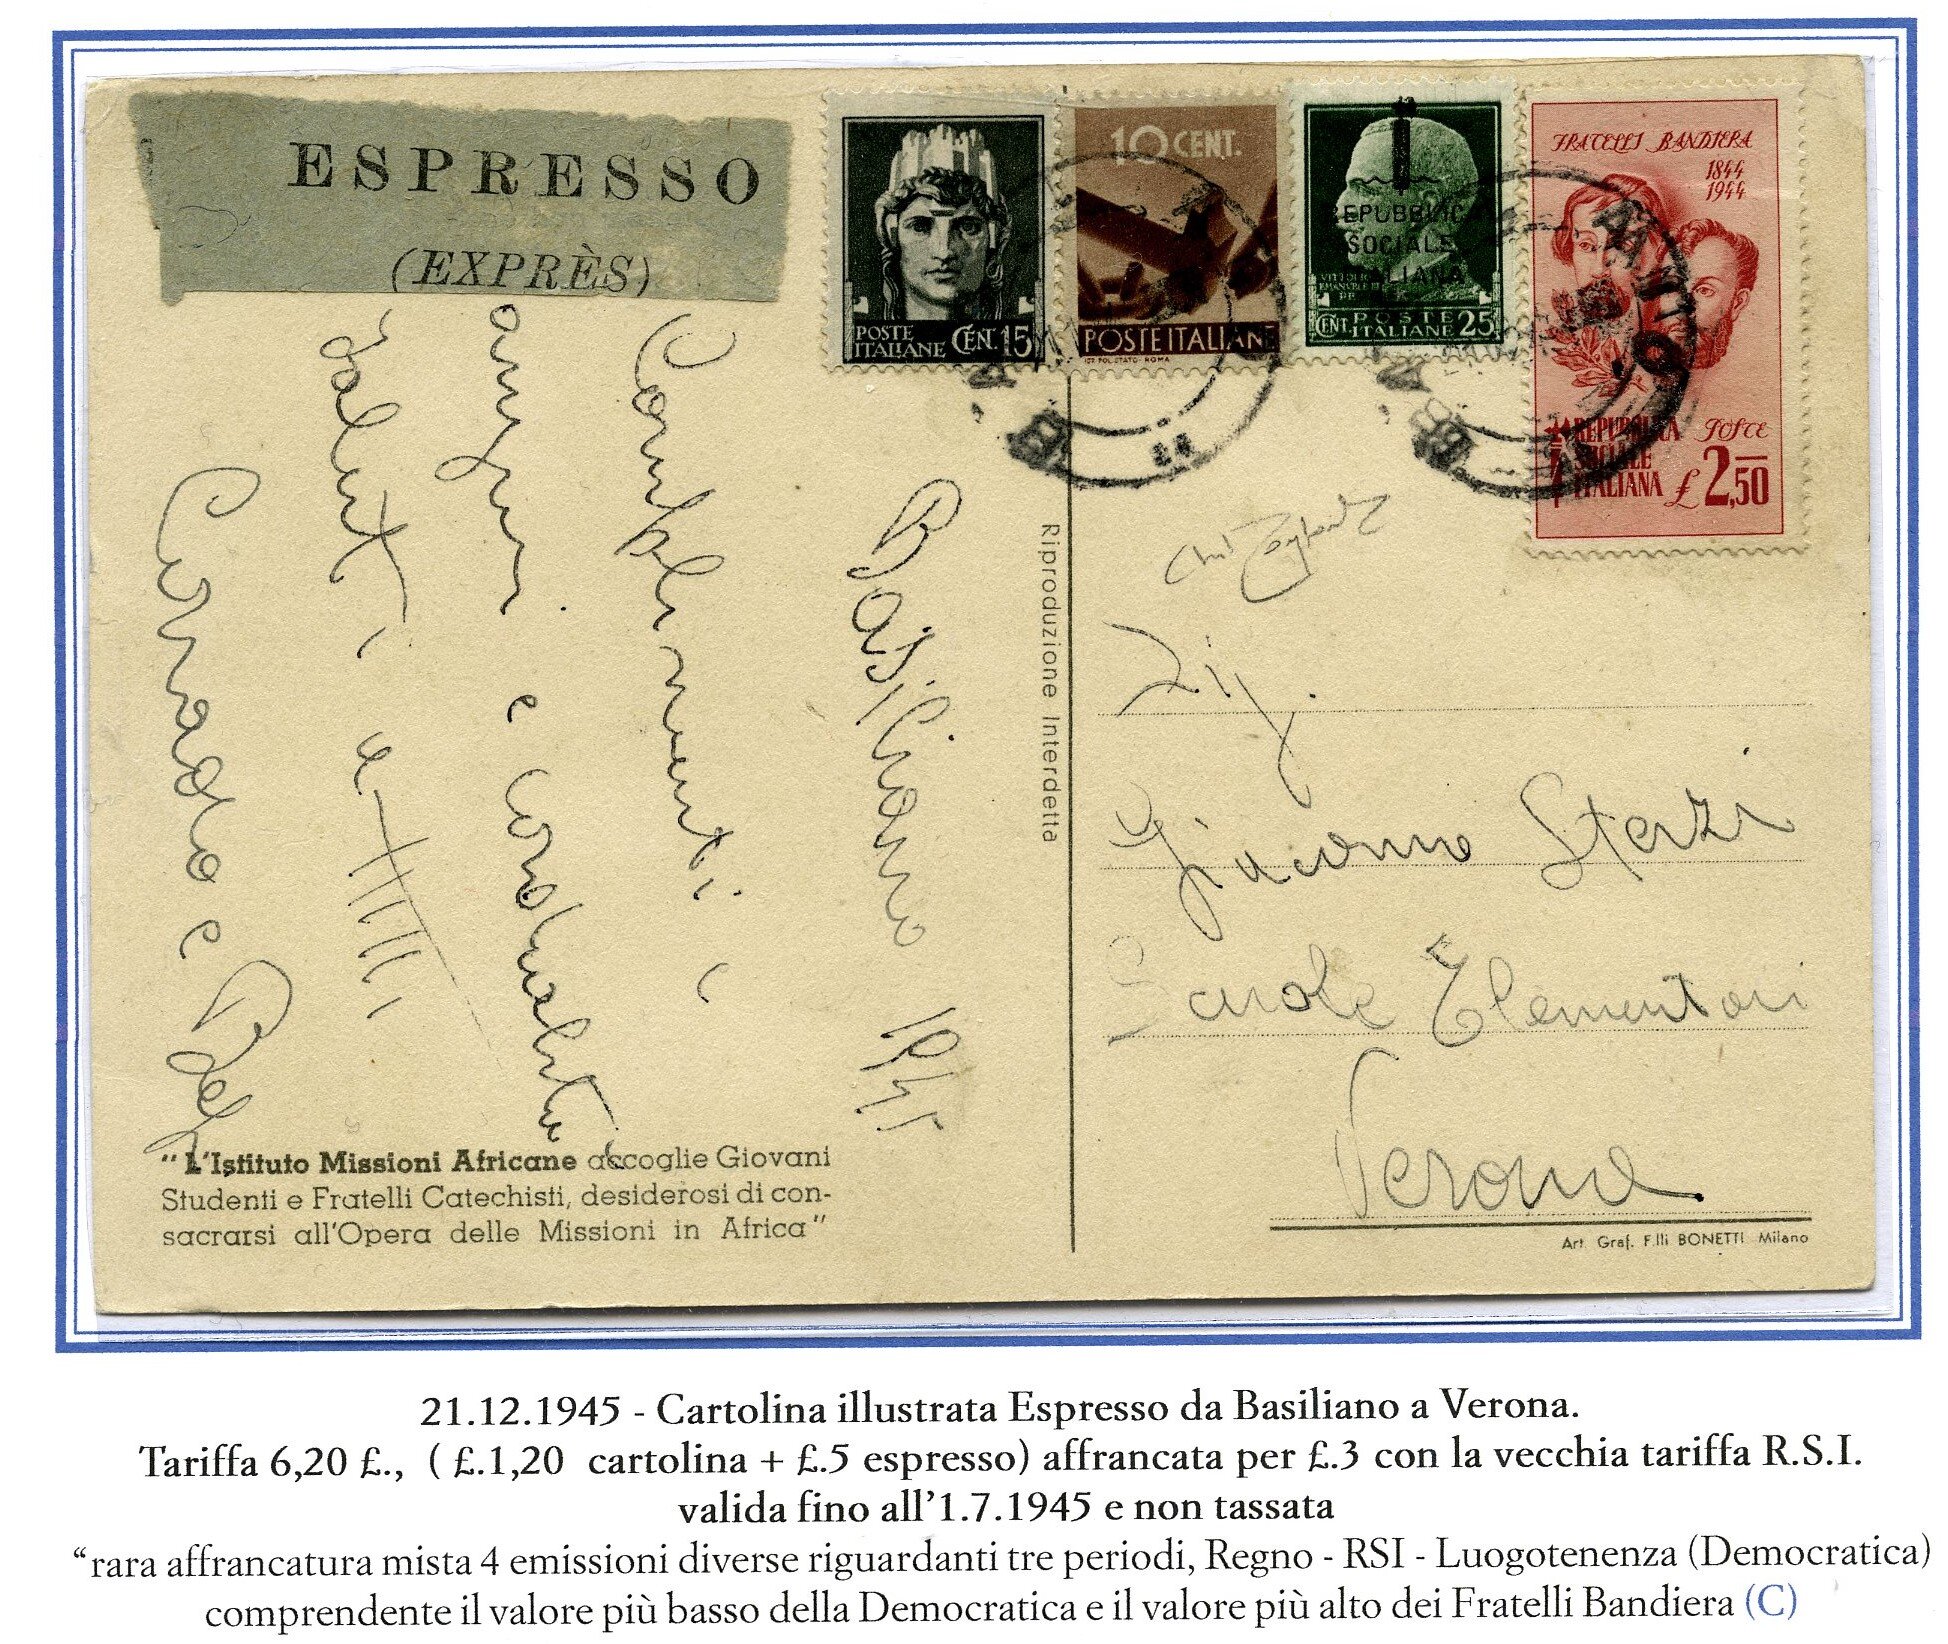 ESPRESSO
(EXPRÈS)
POSTE
ITALIANE CEN. 15
10 CENT.
POSTE ITALIANE
IST. POL. STATO - ROMA
REPUBBLICA
SOCIALE
ITALIANA
VITTORIO
EMANUELE III
CENT. POSTE
ITALIANE 25
FRATELLI BANDIERA
1844
1944
REPUBBLICA
SOCIALE
ITALIANA
POSTE
£ 2,50
Basiliano 1945
Complimenti
auguri e cordialità
saluti a
Corrado e
Riproduzione Interdetta
Sig.
Giacomo Sterzi
Scuole Elementari
Verona
"L'Istituto Missioni Africane accoglie Giovani
Studenti e Fratelli Catechisti, desiderosi di con-
sacrarsi all'Opera delle Missioni in Africa"
Art. Graf. F.lli BONETTI Milano
21.12.1945 - Cartolina illustrata Espresso da Basiliano a Verona.
Tariffa 6,20 £., ( £.1,20 cartolina + £.5 espresso) affrancata per £.3 con la vecchia tariffa R.S.I.
valida fino all'1.7.1945 e non tassata
“rara affrancatura mista 4 emissioni diverse riguardanti tre periodi, Regno - RSI - Luogotenenza (Democratica)
comprendente il valore più basso della Democratica e il valore più alto dei Fratelli Bandiera (C)